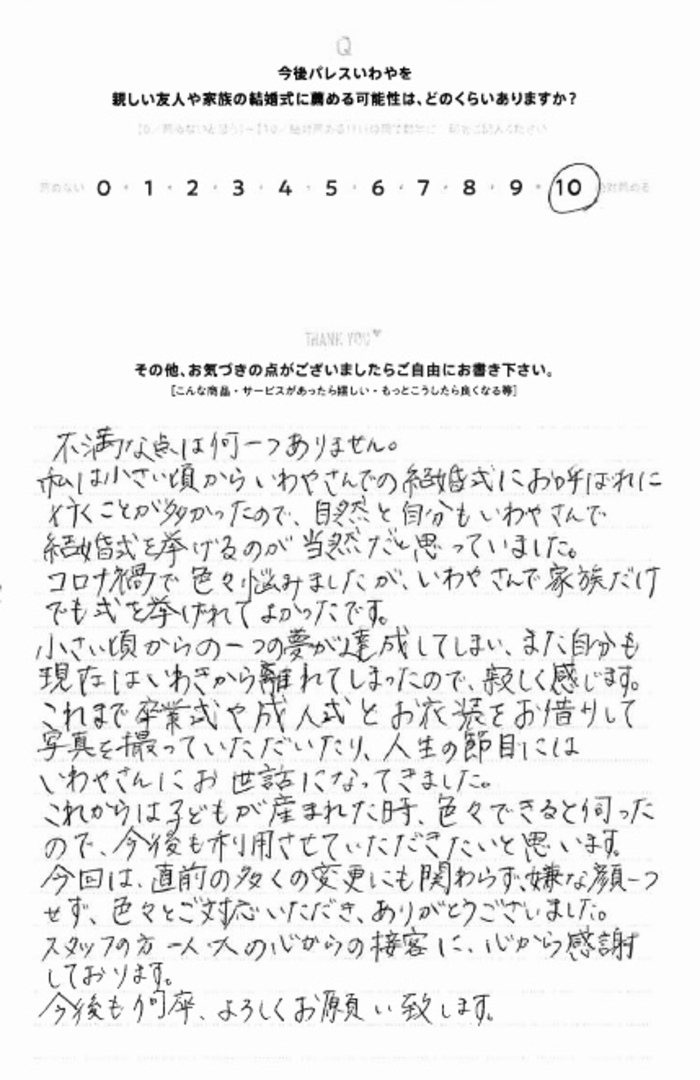 Q
今後パレスいわやを
親しい友人や家族の結婚式に薦める可能性は、どのくらいありますか？
薦めない 0・1・2・3・4・5・6・7・8・9・10 絶対薦める
THANK YOU♥
その他、お気づきの点がございましたらご自由にお書き下さい。
[こんな商品・サービスがあったら嬉しい・もっとこうしたら良くなる等]
不満な点は何一つありません。
私は小さい頃からいわやさんでの結婚式にお呼ばれに
行くことが多かったので、自然と自分もいわやさんで
結婚式を挙げるのが当然だと思っていました。
コロナ禍で色々悩みましたが、いわやさんで家族だけ
でも式を挙げれてよかったです。
小さい頃からの一つの夢が達成してしまい、また自分も
現在はいわきから離れてしまったので、寂しく感じます。
これまで卒業式や成人式とお衣装をお借りして
写真を撮っていただいたり、人生の節目には
いわやさんにお世話になってきました。
これからは子どもが産まれた時、色々できると伺った
ので、今後も利用させていただきたいと思います。
今回は、直前の多くの変更にも関わらず、嫌な顔一つ
せず、色々とご対応いただき、ありがとうございました。
スタッフの方一人一人の心からの接客に、心から感謝
しております。
今後も何卒、よろしくお願い致します。